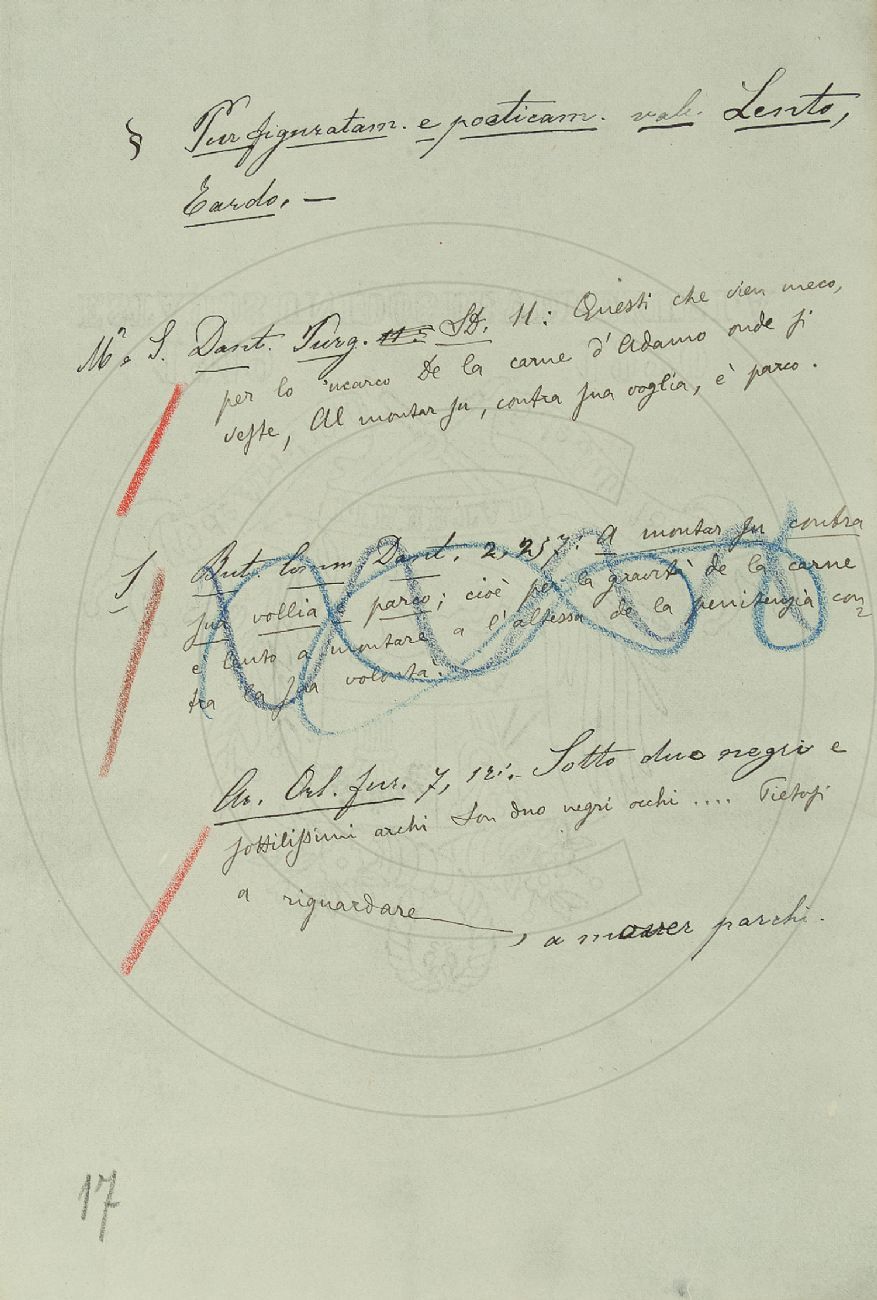 § Pur figuratam. e poeticam. vale Lento,
Tardo. —
Mª e S. Dant. Purg. 11: SD. 11: Questi che vien meco,
per lo 'ncarco De la carne d'Adamo onde si
veste, Al montar su, contra sua voglia, è parco.
S But. Comm Dant. 2, 257: A montar su contra
sua vollia è parco; cioè per la gravità de la carne
e lento a montare a l'altessa de la penitenzia con=
tra la sua volontà.
Ar. Orl. fur. 7, 12:- Sotto duo negri e
sottilissimi archi Son duo negri occhi .... Pietosi
a riguardare, a mover parchi.
17